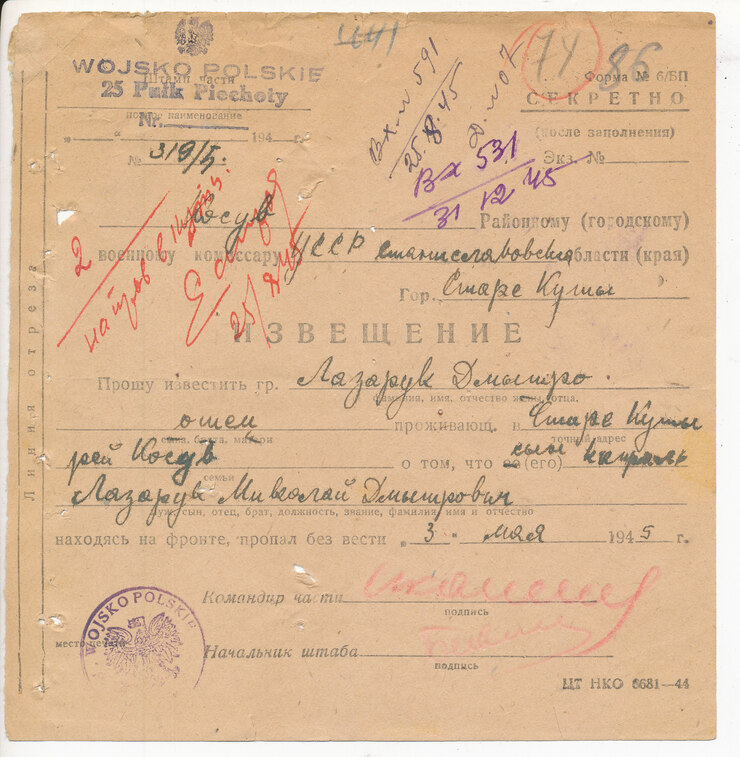 WOJSKO POLSKIE
Штамп части
25 Pułk Piechoty
номер наименование
Nr.
„ “ 194 г.
№ 319/5.
441
Вх. № 591
25.8.45
Д. № 07
74
86
Форма № 6/БП
СЕКРЕТНО
(после заполнения)
Экз. №
Вх 531
31 12 45
Косув Районному (городскому)
военному комиссару УССР Станиславовская области (края)
Гор. Старе Куты
2
25/8 45
ИЗВЕЩЕНИЕ
Прошу известить гр. Лазарук Дмытро.
фамилия, имя, отчество жены, отца,
отец проживающ. в Старе Куты
сына, брата, матери точный адрес
рей Косув о том, что ее (его) сын капраль
семьи
Лазарук Миколай Дмытрович
муж, сын, отец, брат, должность, звание, фамилия, имя и отчество
находясь на фронте, пропал без вести „ 3 " мая 1945 г.
Командир части
подпись
место печати
Начальник штаба
подпись
WOJSKO POLSKIE
ЦТ НКО 6681—44
Линия отреза